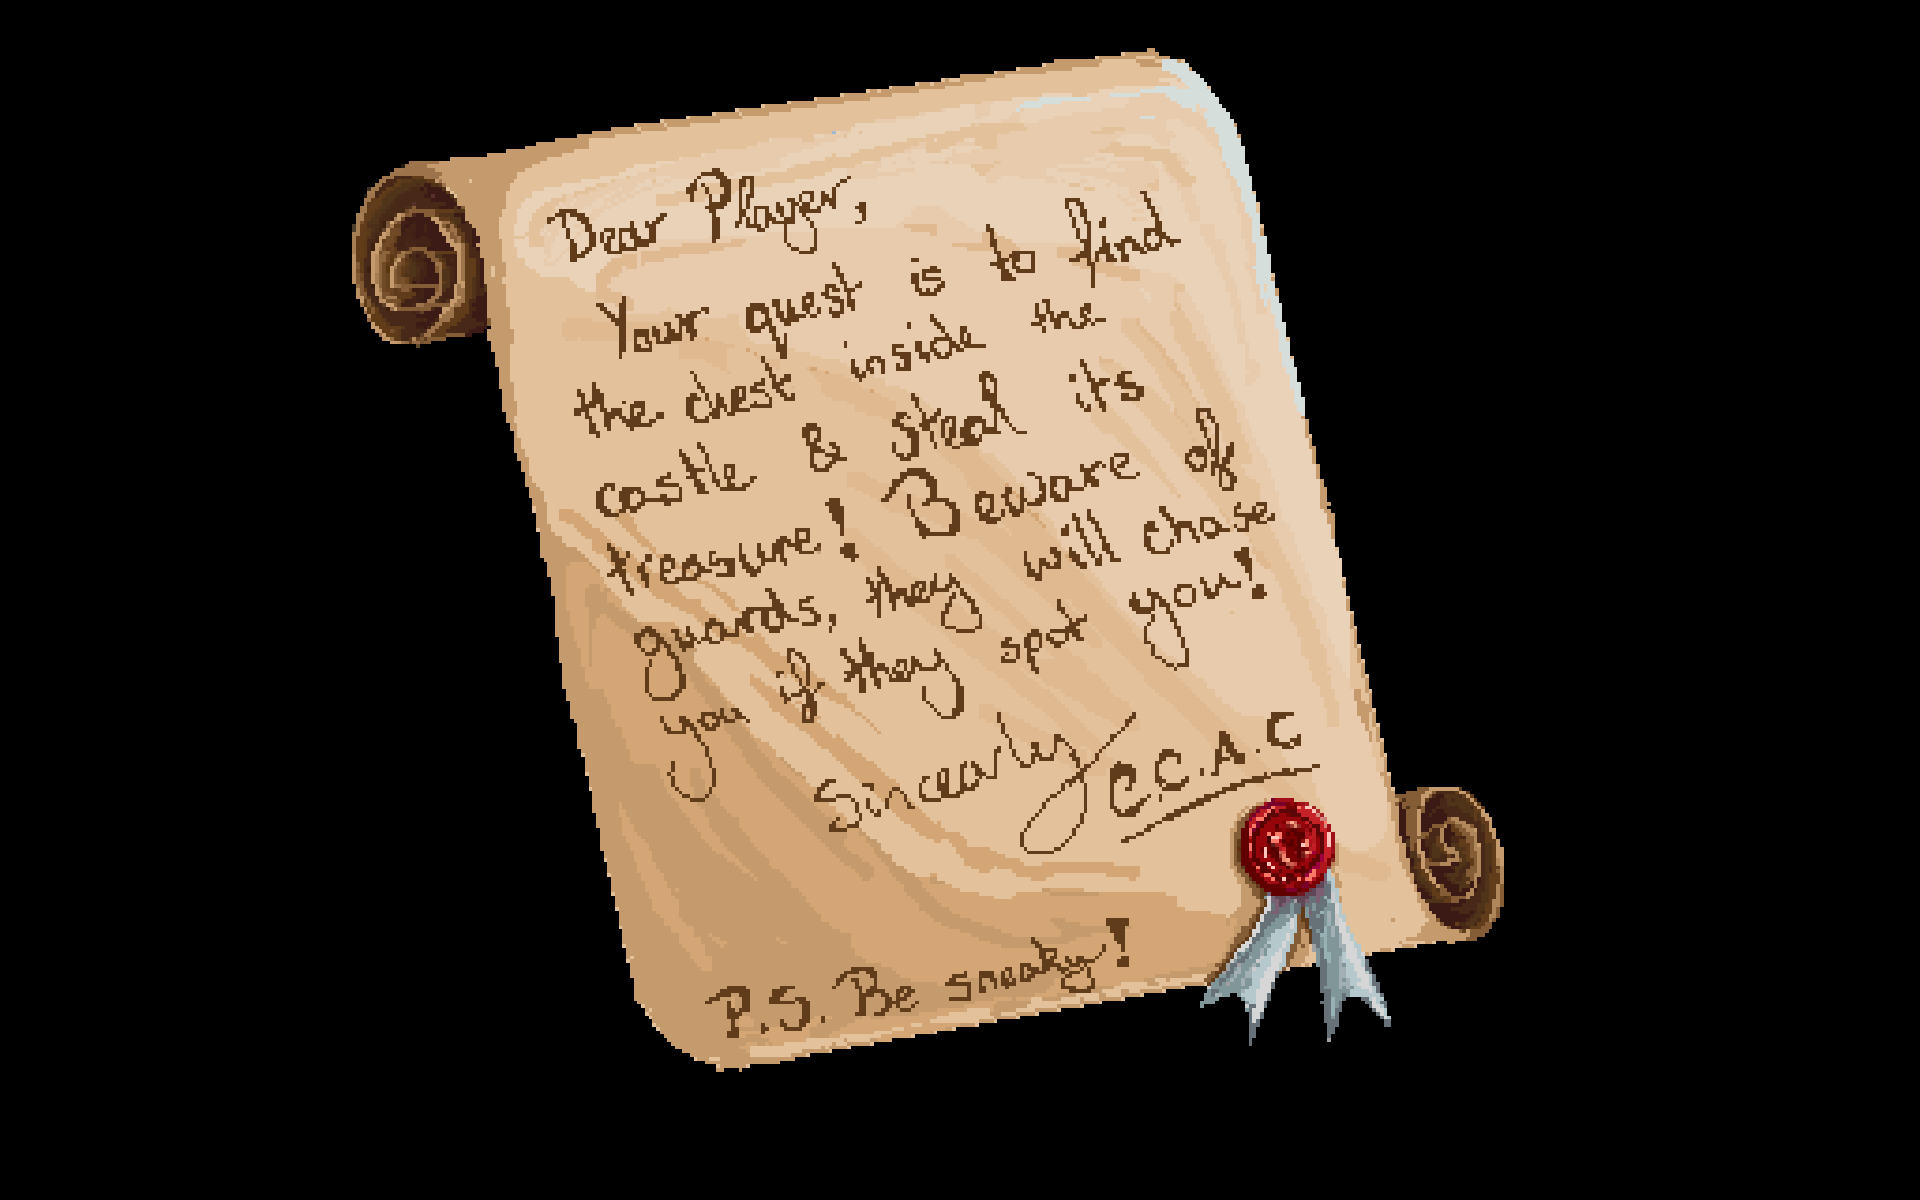 Dear Player,
Your quest is to find
the chest inside the
castle & steal its
treasure! Beware of
guards, they will chase
you if they spot you!
Sincearly C.C.A.C
P.S. Be sneaky!